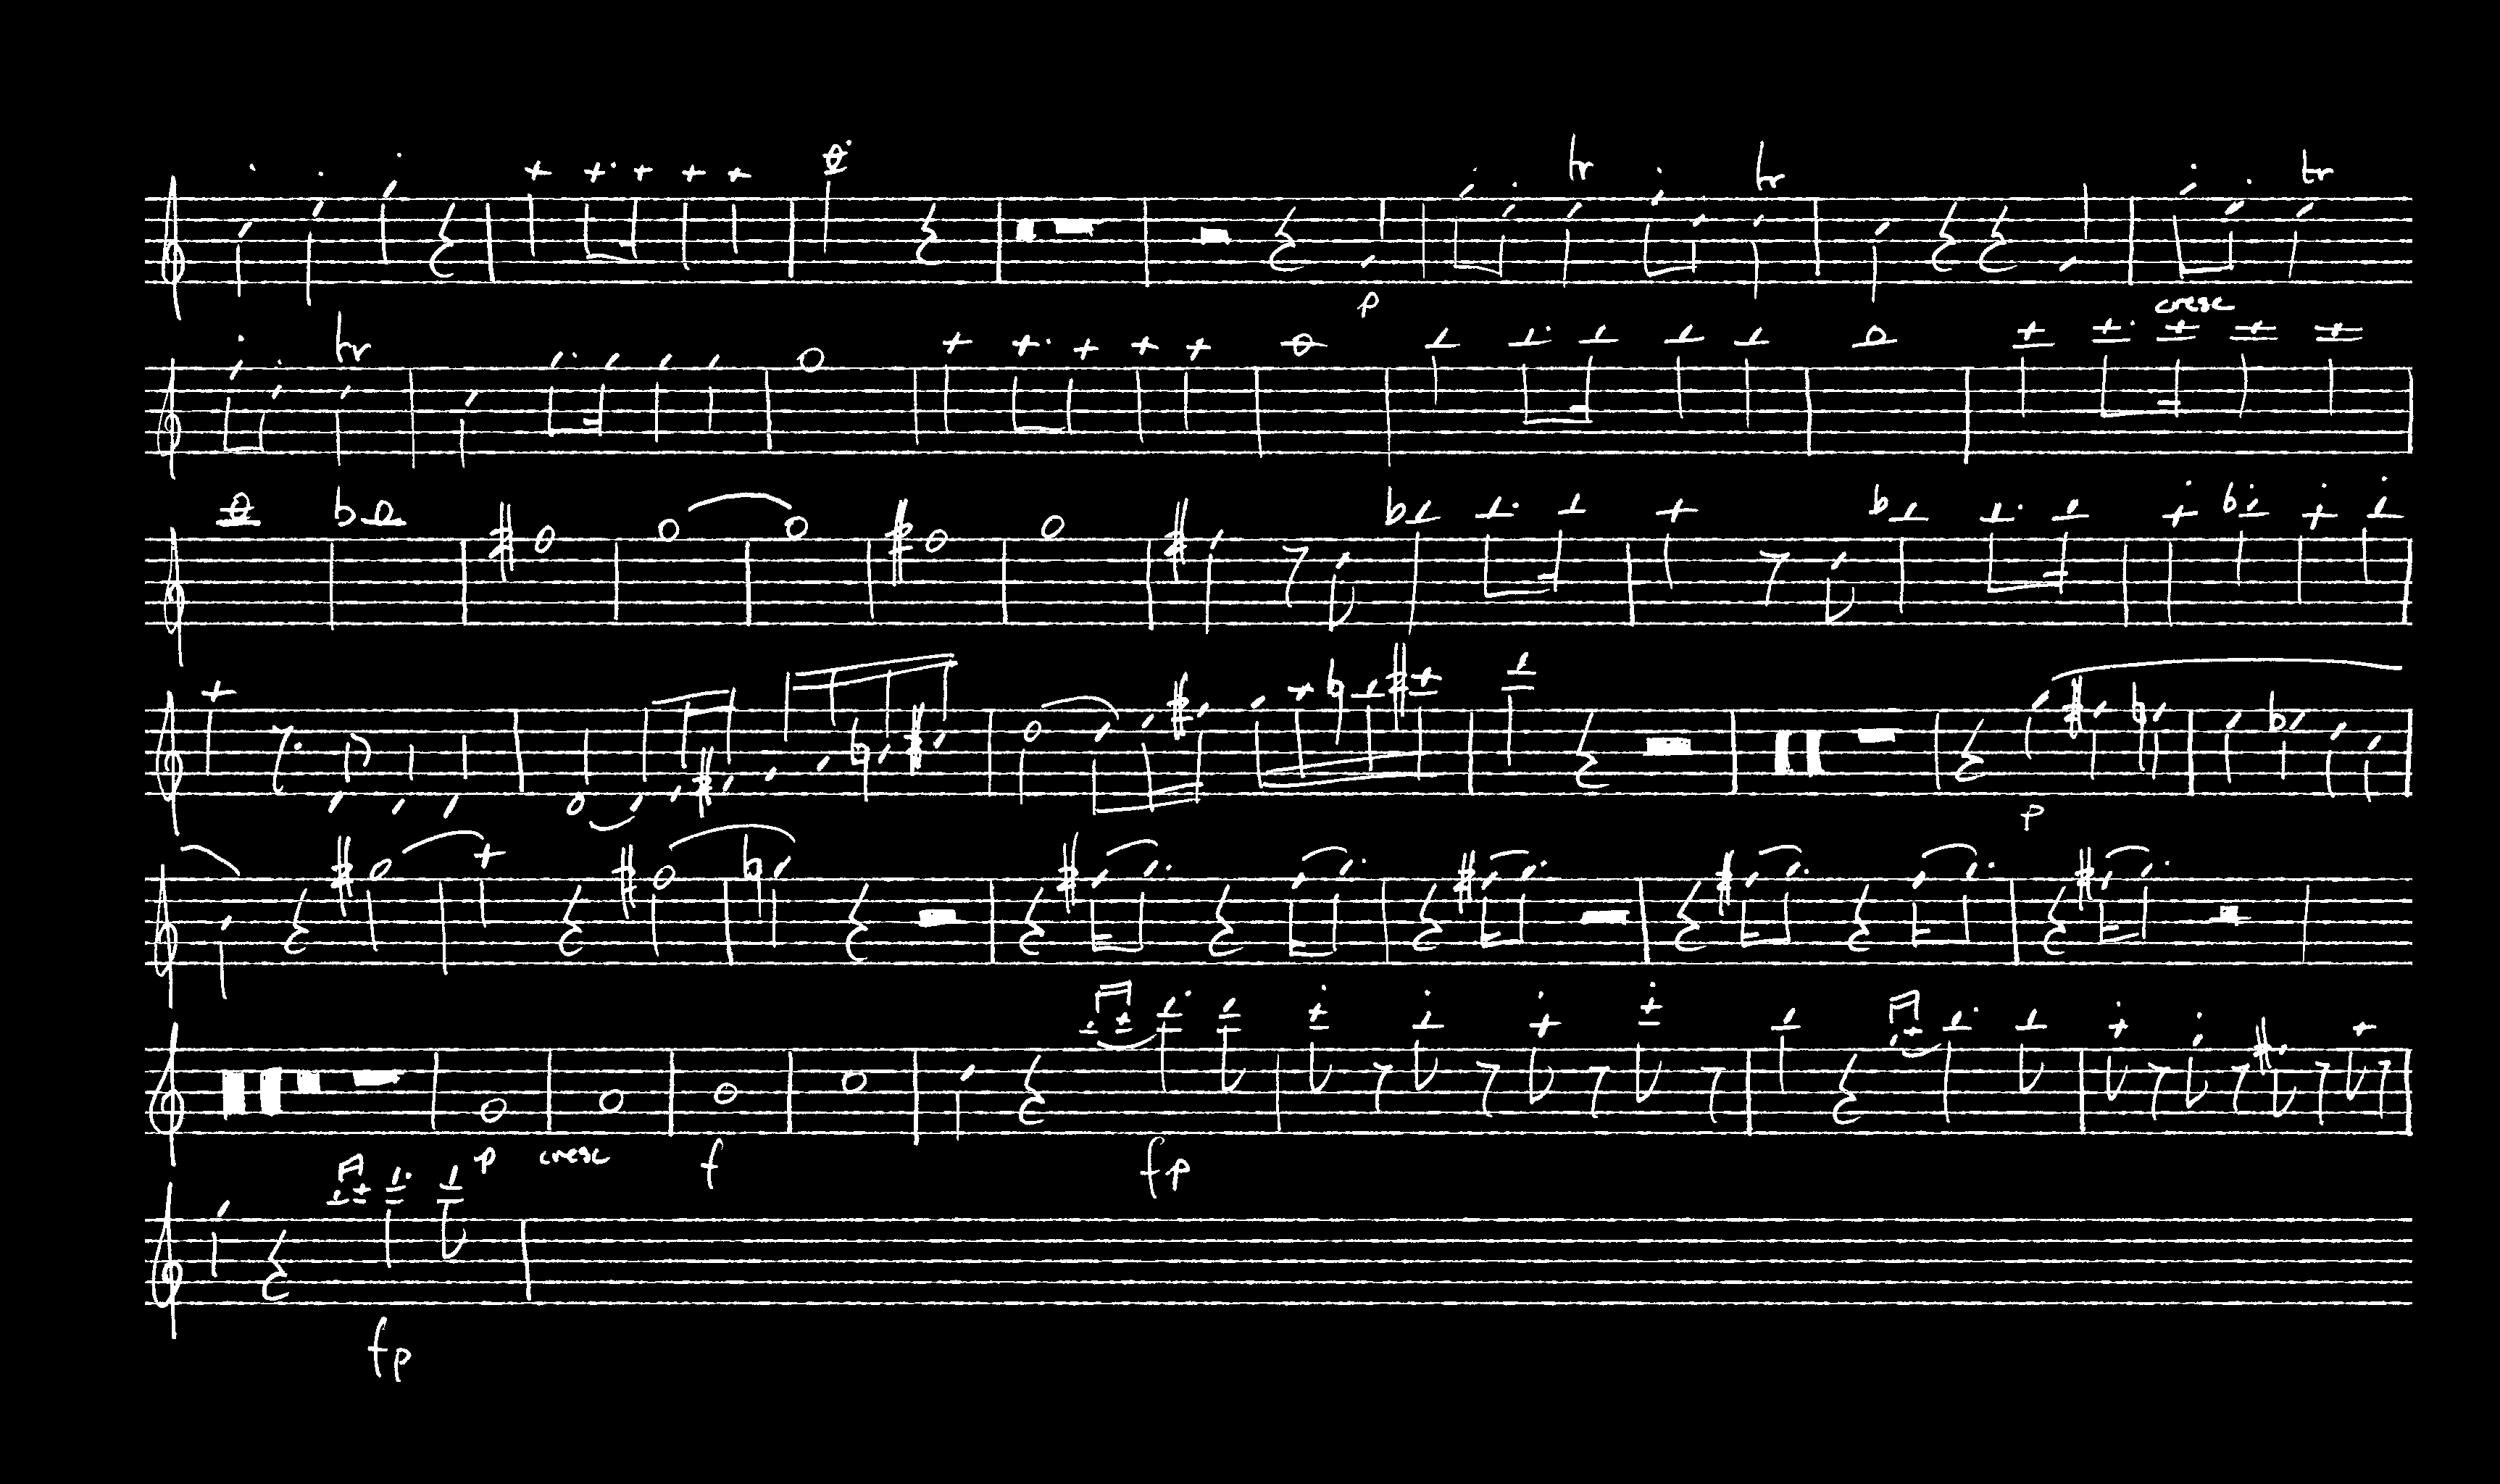 tr tr tr
p
cresc
tr
p
p cresc f fp
fp